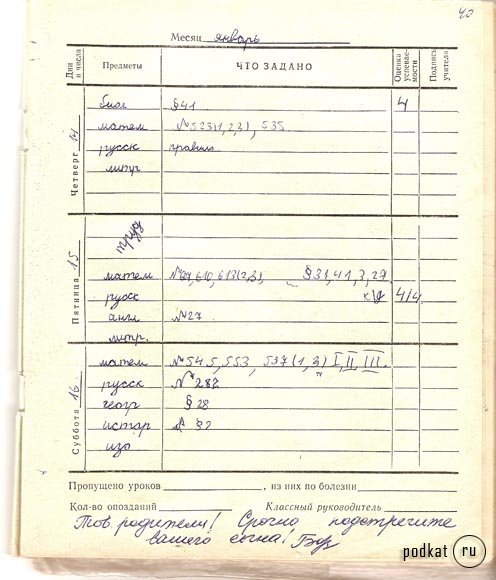 40
Месяц январь
Дни и числа Предметы ЧТО ЗАДАНО Оценка успеваемости Подпись учителя
Четверг 14
биол §41 4
матем №523(1,2,3), 535
русск правил.
литр
Пятница 15
труд
матем 610, 613(2,3), §31,41,3,27
русск 4/4
англ №27
литр.
Суббота 16
матем №545, 553, 537(1,3) I, II, III.
русск №282
геогр §28
истор §2
изо
Пропущено уроков , из них по болезни
Кол-во опозданий Классный руководитель
Тов. родители! Срочно подстрегите
вашего сына!
podkat ru